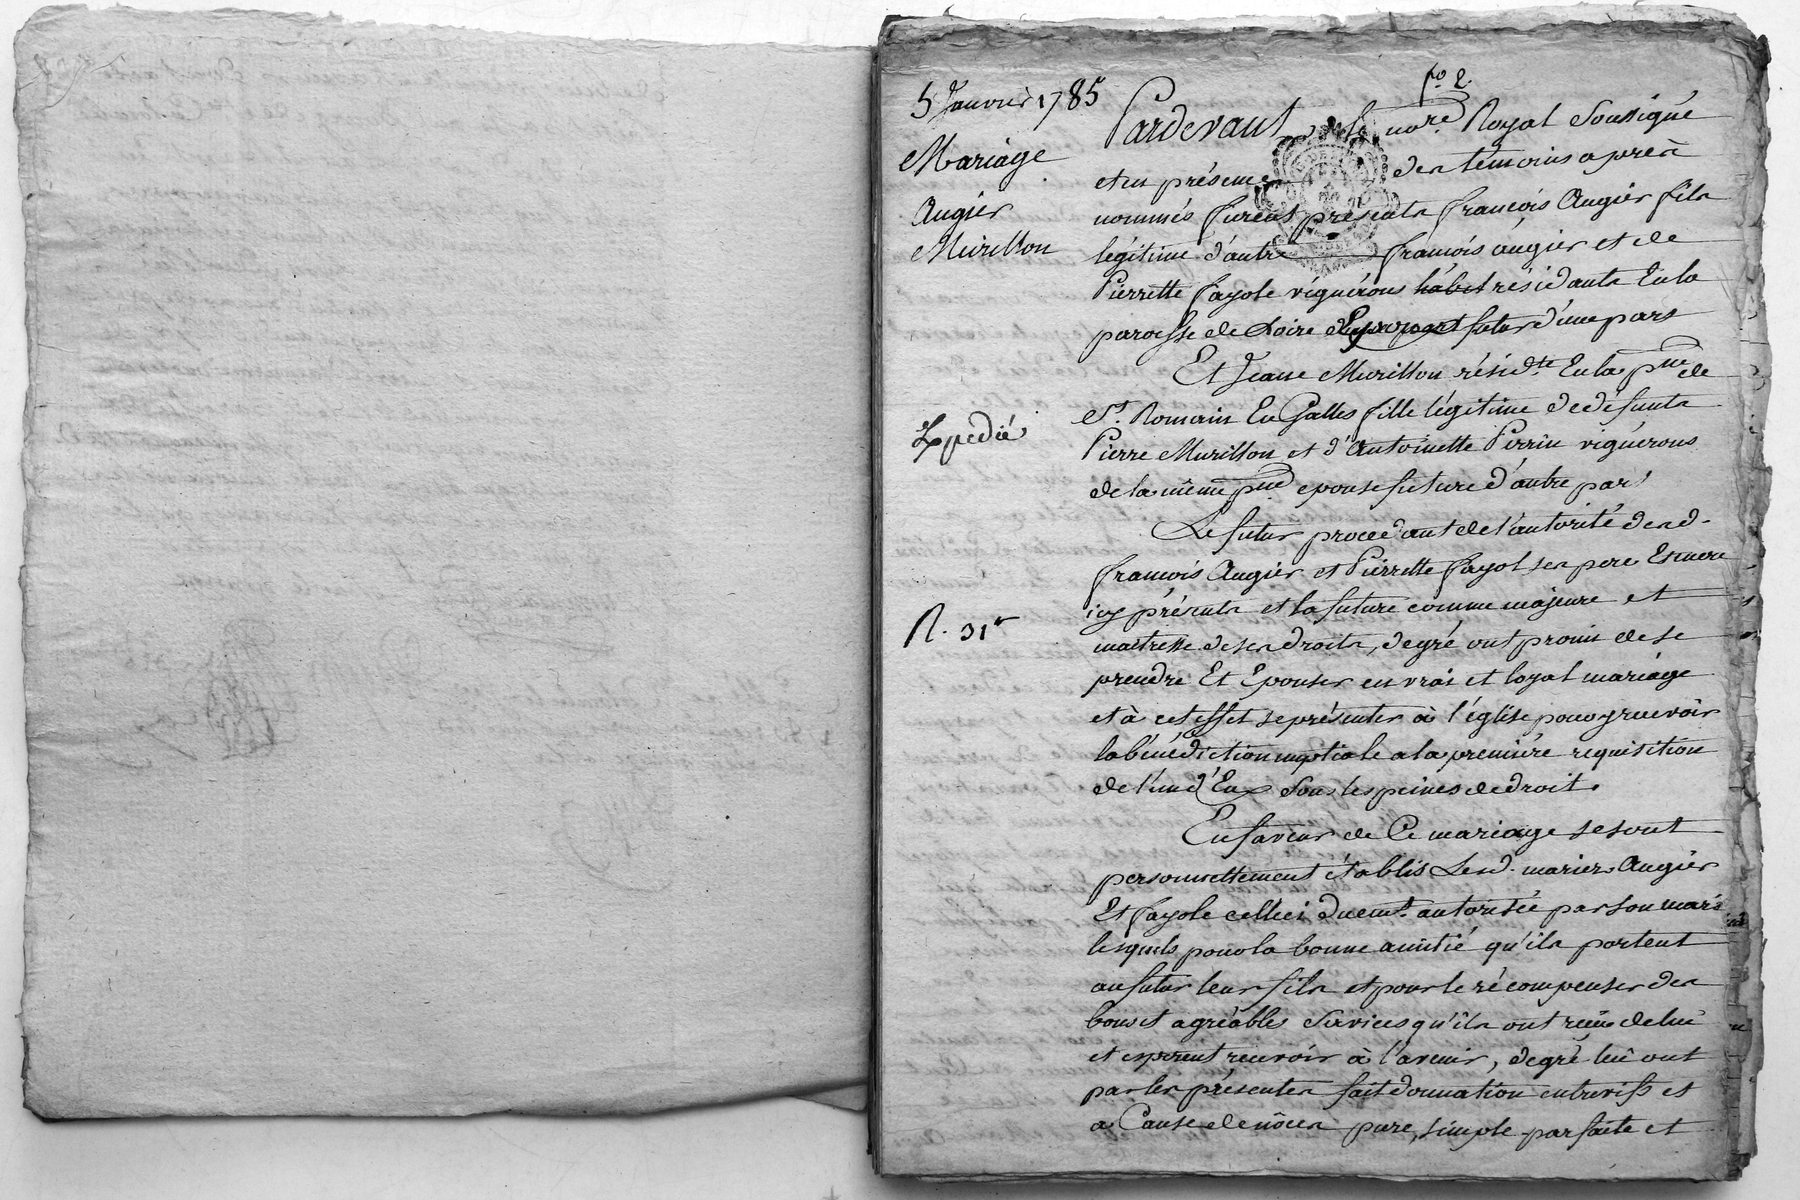 5 Janvier 1785
Mariage
Augier
Murillon
Expedié
R. 31
fo. 2.
Pardevant le nore. Royal Soussigné
et en présence des témoins après
nommés furent présents françois Augier fils
légitime d'autre françois augier et de
Pierrette fayole vignérons habit résidants En la
paroisse de Loire Epoux futur d'une part
Et Jeane Murillon résidte. En la psse de
St. Romain En Galles fille légitime de défunts
Pierre Murillon et d'Antoinette Perrin vignérons
de la même psse epouse future d'autre part
Le futur procedant de l'autorité desd.
françois Augier et Pierrette fayol ses pere Et mere
icy présents et la future comme majeure et
maitresse de ses droits, de gré ont promis de se
prendre Et Epouser en vrai et loyal mariage
et à cet effet se présenter à l'église pour y recevoir
la bénédiction nuptiale a la premiére requisition
de l'un d'Eux Sous les peines de droit.
En faveur de Ce mariage se sont
personnellement établis Lesd. mariez Augier
Et fayole celleci duemt. autorisée par son mari
lesquels pour la bonne amitié qu'ils portent
au futur leur fils et pour le récompenser des
bons et agréables Services qu'ils ont reçus de lui
et esperent recevoir à l'avenir, de gré lui ont
par les présentes fait donnation entrevifs et
a Cause de nôces pure, simple parfaite et